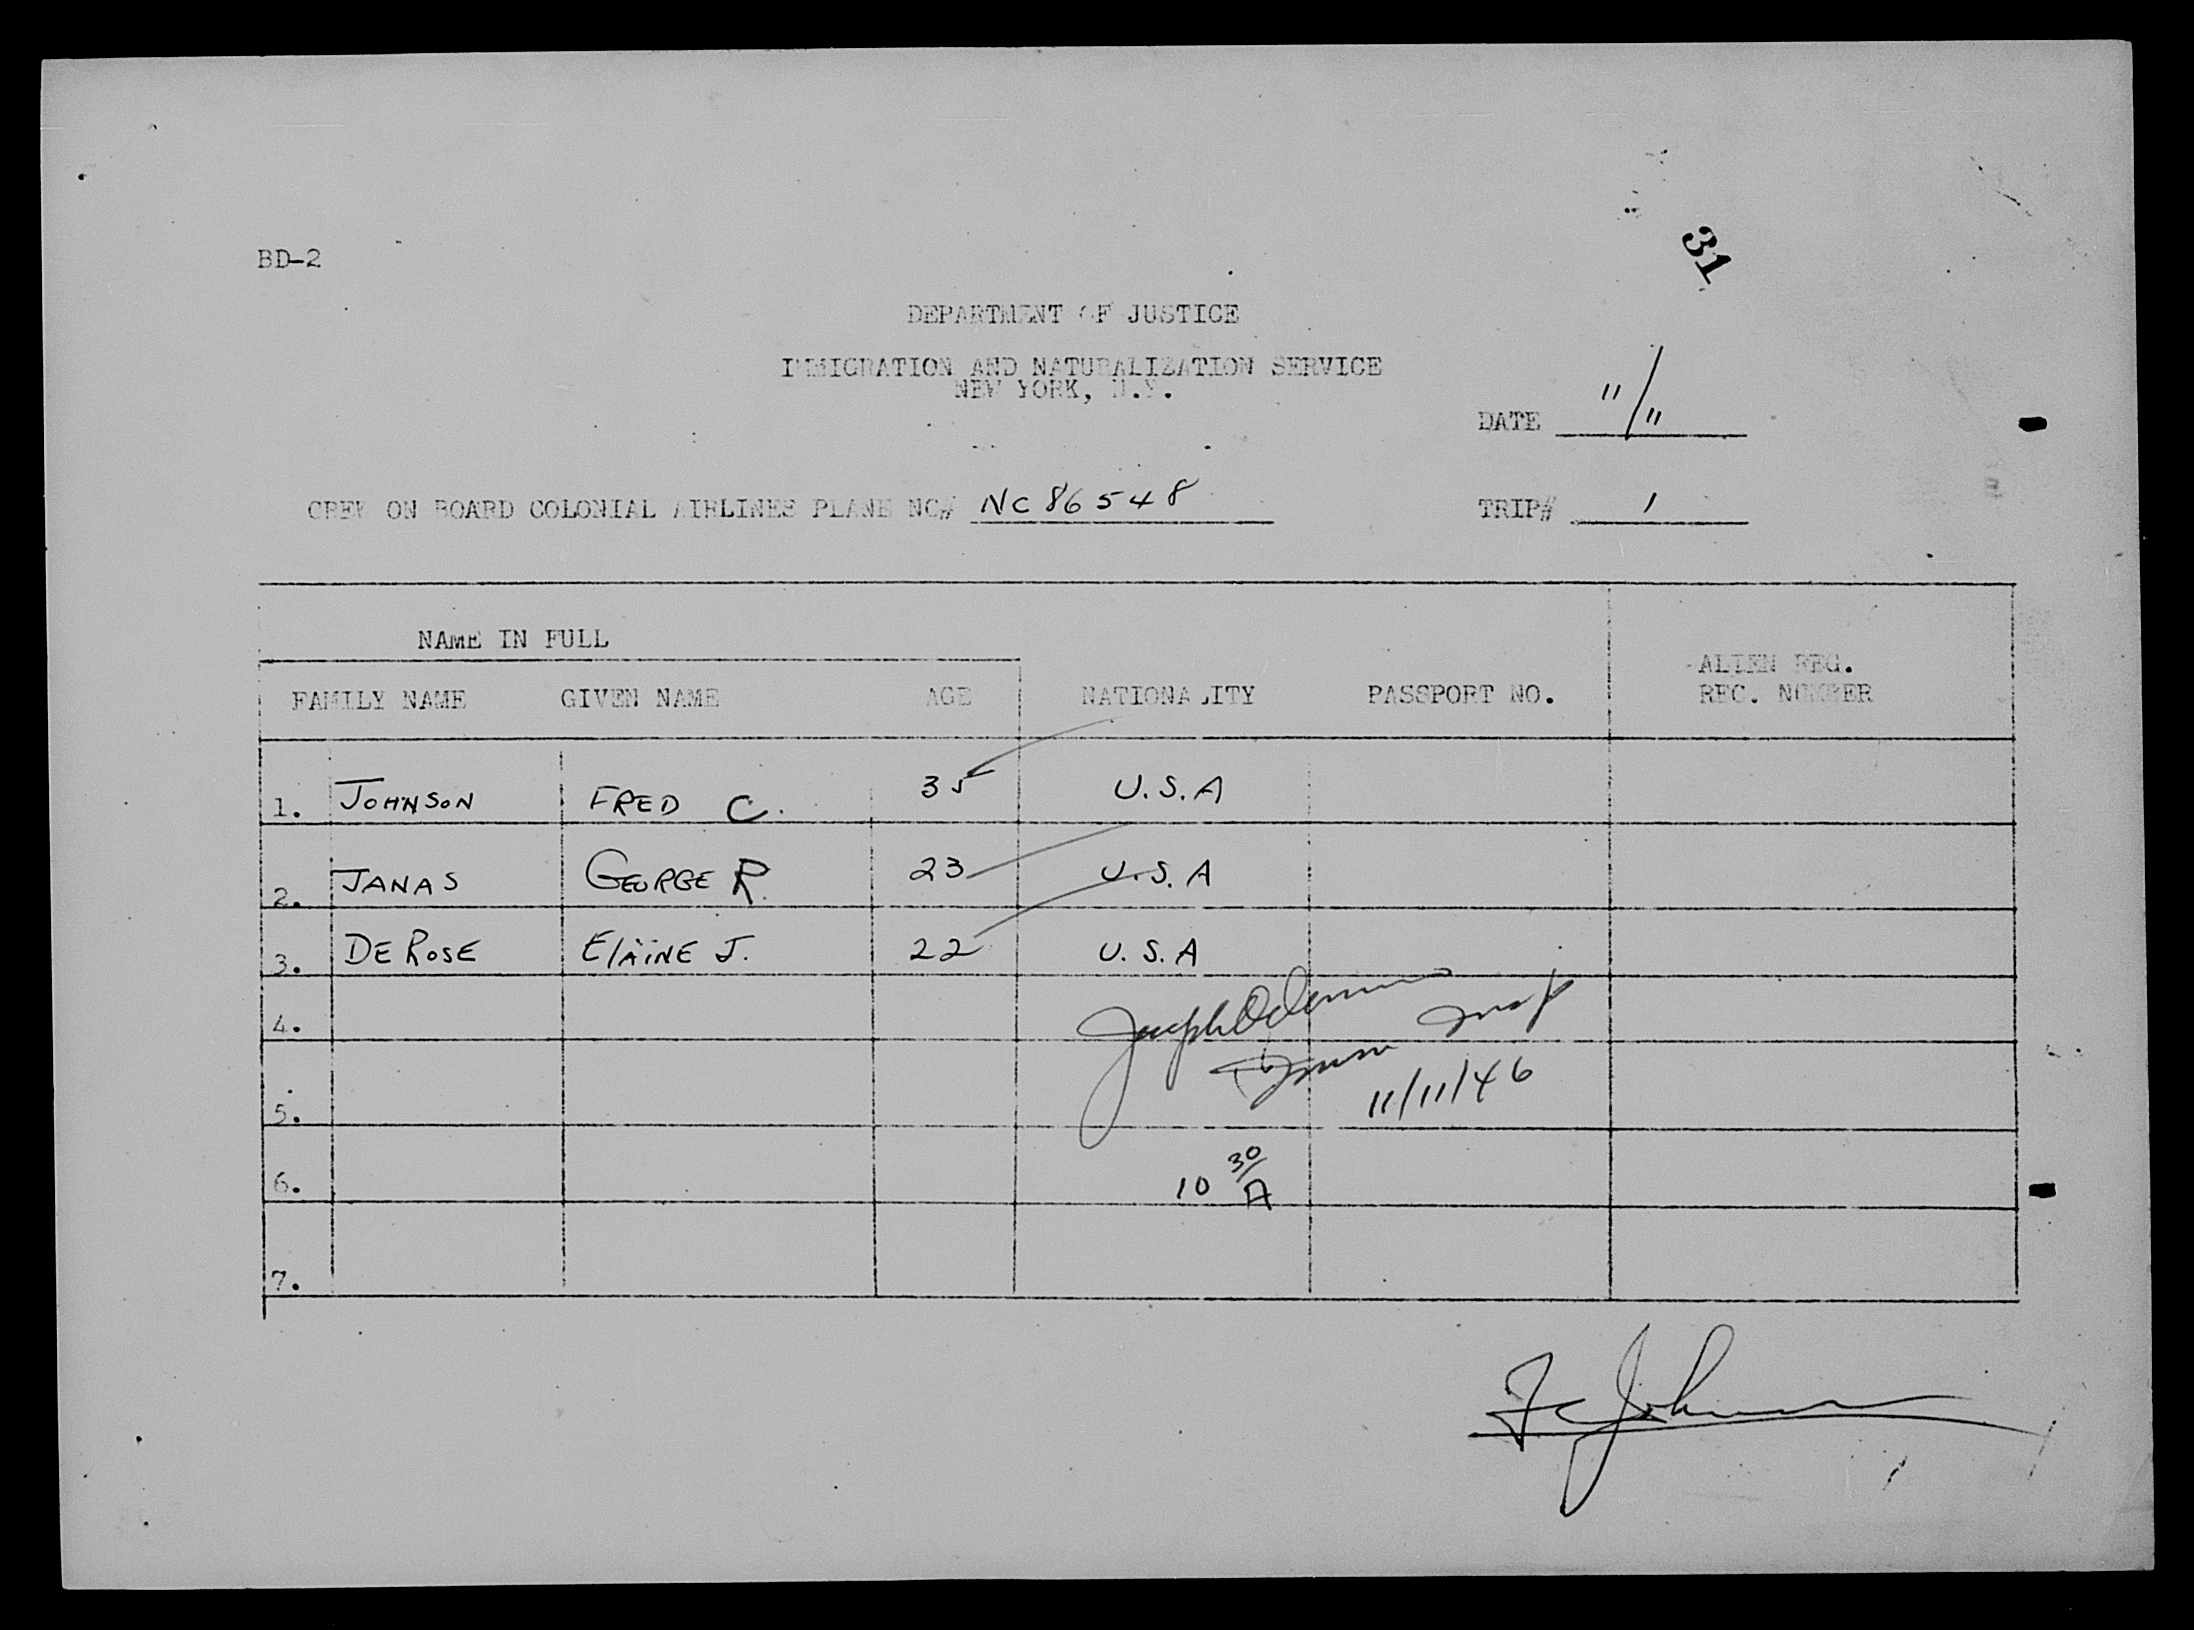 31
BD-2
DEPARTMENT OF JUSTICE
IMMIGRATION AND NATURALIZATION SERVICE
NEW YORK, N.Y.
DATE 11/11
CREW ON BOARD COLONIAL AIRLINES PLANE NC# NC 86548
TRIP# 1
NAME IN FULL
FAMILY NAME GIVEN NAME AGE NATIONALITY PASSPORT NO. ALIEN REG.
REC. NUMBER
1. JOHNSON FRED C. 35 U.S.A
2. JANAS GEORGE R. 23 U.S.A
3. DE ROSE ElAiNE J. 22 U.S.A
Joseph
4.
Insp
11/11/46
5.
6. 10 30/A
7.
F C Johnson